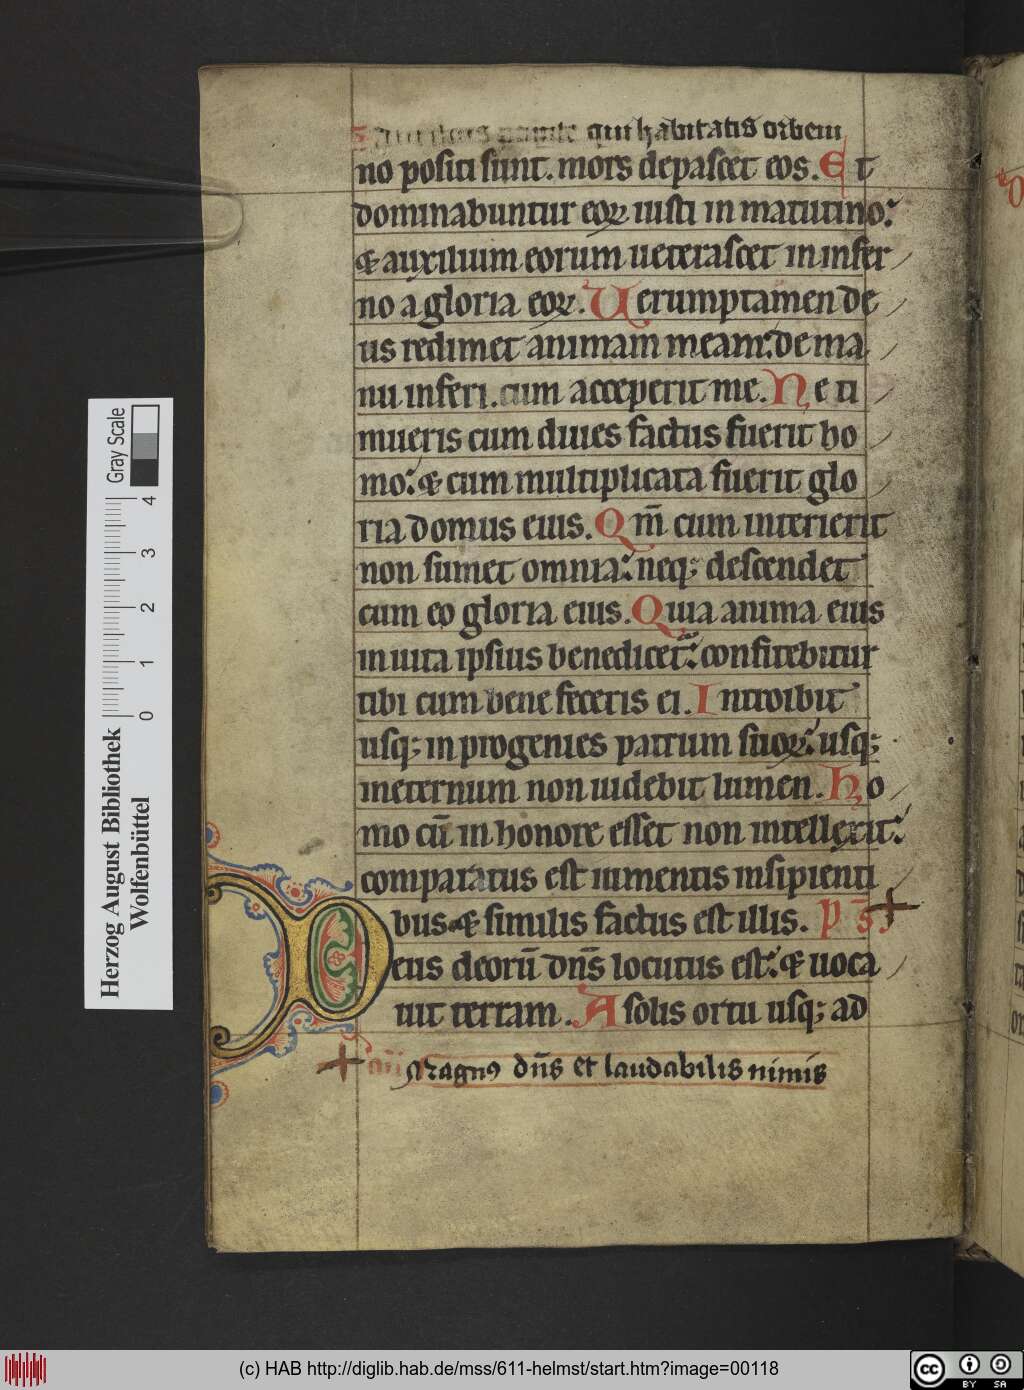 qui habitatis orbem
no positi sunt. mors depascet eos. Et
dominabuntur eoꝝ iusti in matutino:
& auxilium eorum ueterascet in infer
no a gloria eoꝝ. Uerumptamen de
us redimet animam meam: de ma
nu inferi. cum acceperit me. Ne ti
mueris cum diues factus fuerit ho
mo: & cum multiplicata fuerit glo
ria domus eius. Qm̄ cum interierit
non sumet omnia: neq; descendet
cum eo gloria eius. Quia anima eius
in uita ipsius benedicet: confitebitur
tibi cum bene feceris ei. Introibit
usq; in progenies patrum suoꝝ: usq;
in eternum non uidebit lumen. Ho
mo cū in honore esset non intellexit:
comparatus est iumentis insipienti
bus. & similis factus est illis. p̄s.
Deus deorū dn̄s locutus est: & uoca
uit terram. A solis ortu usq; ad
an̄ Magnꝰ dn̄s et laudabilis nimis
Gray Scale
0 1 2 3 4
Herzog August Bibliothek
Wolfenbüttel
(c) HAB http://diglib.hab.de/mss/611-helmst/start.htm?image=00118
cc BY SA